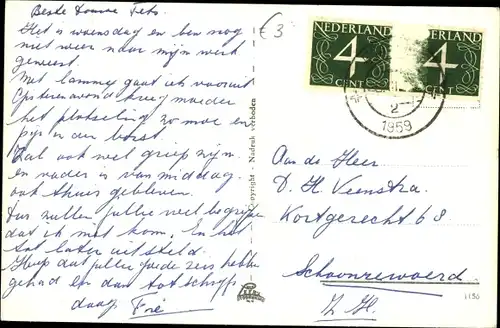 Beste Douwe Fets.
Het is woensdag en ben nog
niet weer naar mijn werk
geweest.
Met Lammy gaat ook vooruit
Gisterenavond kreeg moeder
het plotseling zo moe en
pijn in den borst.
Zal ook wel griep zijn
en vader is van middag
ook thuis gebleven.
Dus zullen jullie wel begrijpen
dat ik niet kom. En het
dat later uitsteld.
Hoop dat jullie goede reis hebben
gehad en dan tot schrijfs
daag
€3
Copyright - Nadruk verboden
NEDERLAND
4
CENT
NEDERLAND
4
CENT
2
1959
Aan de Heer
D. H. Veenstra.
Kortgerecht 68.
Schoonrewoerd
Z. H.
1156